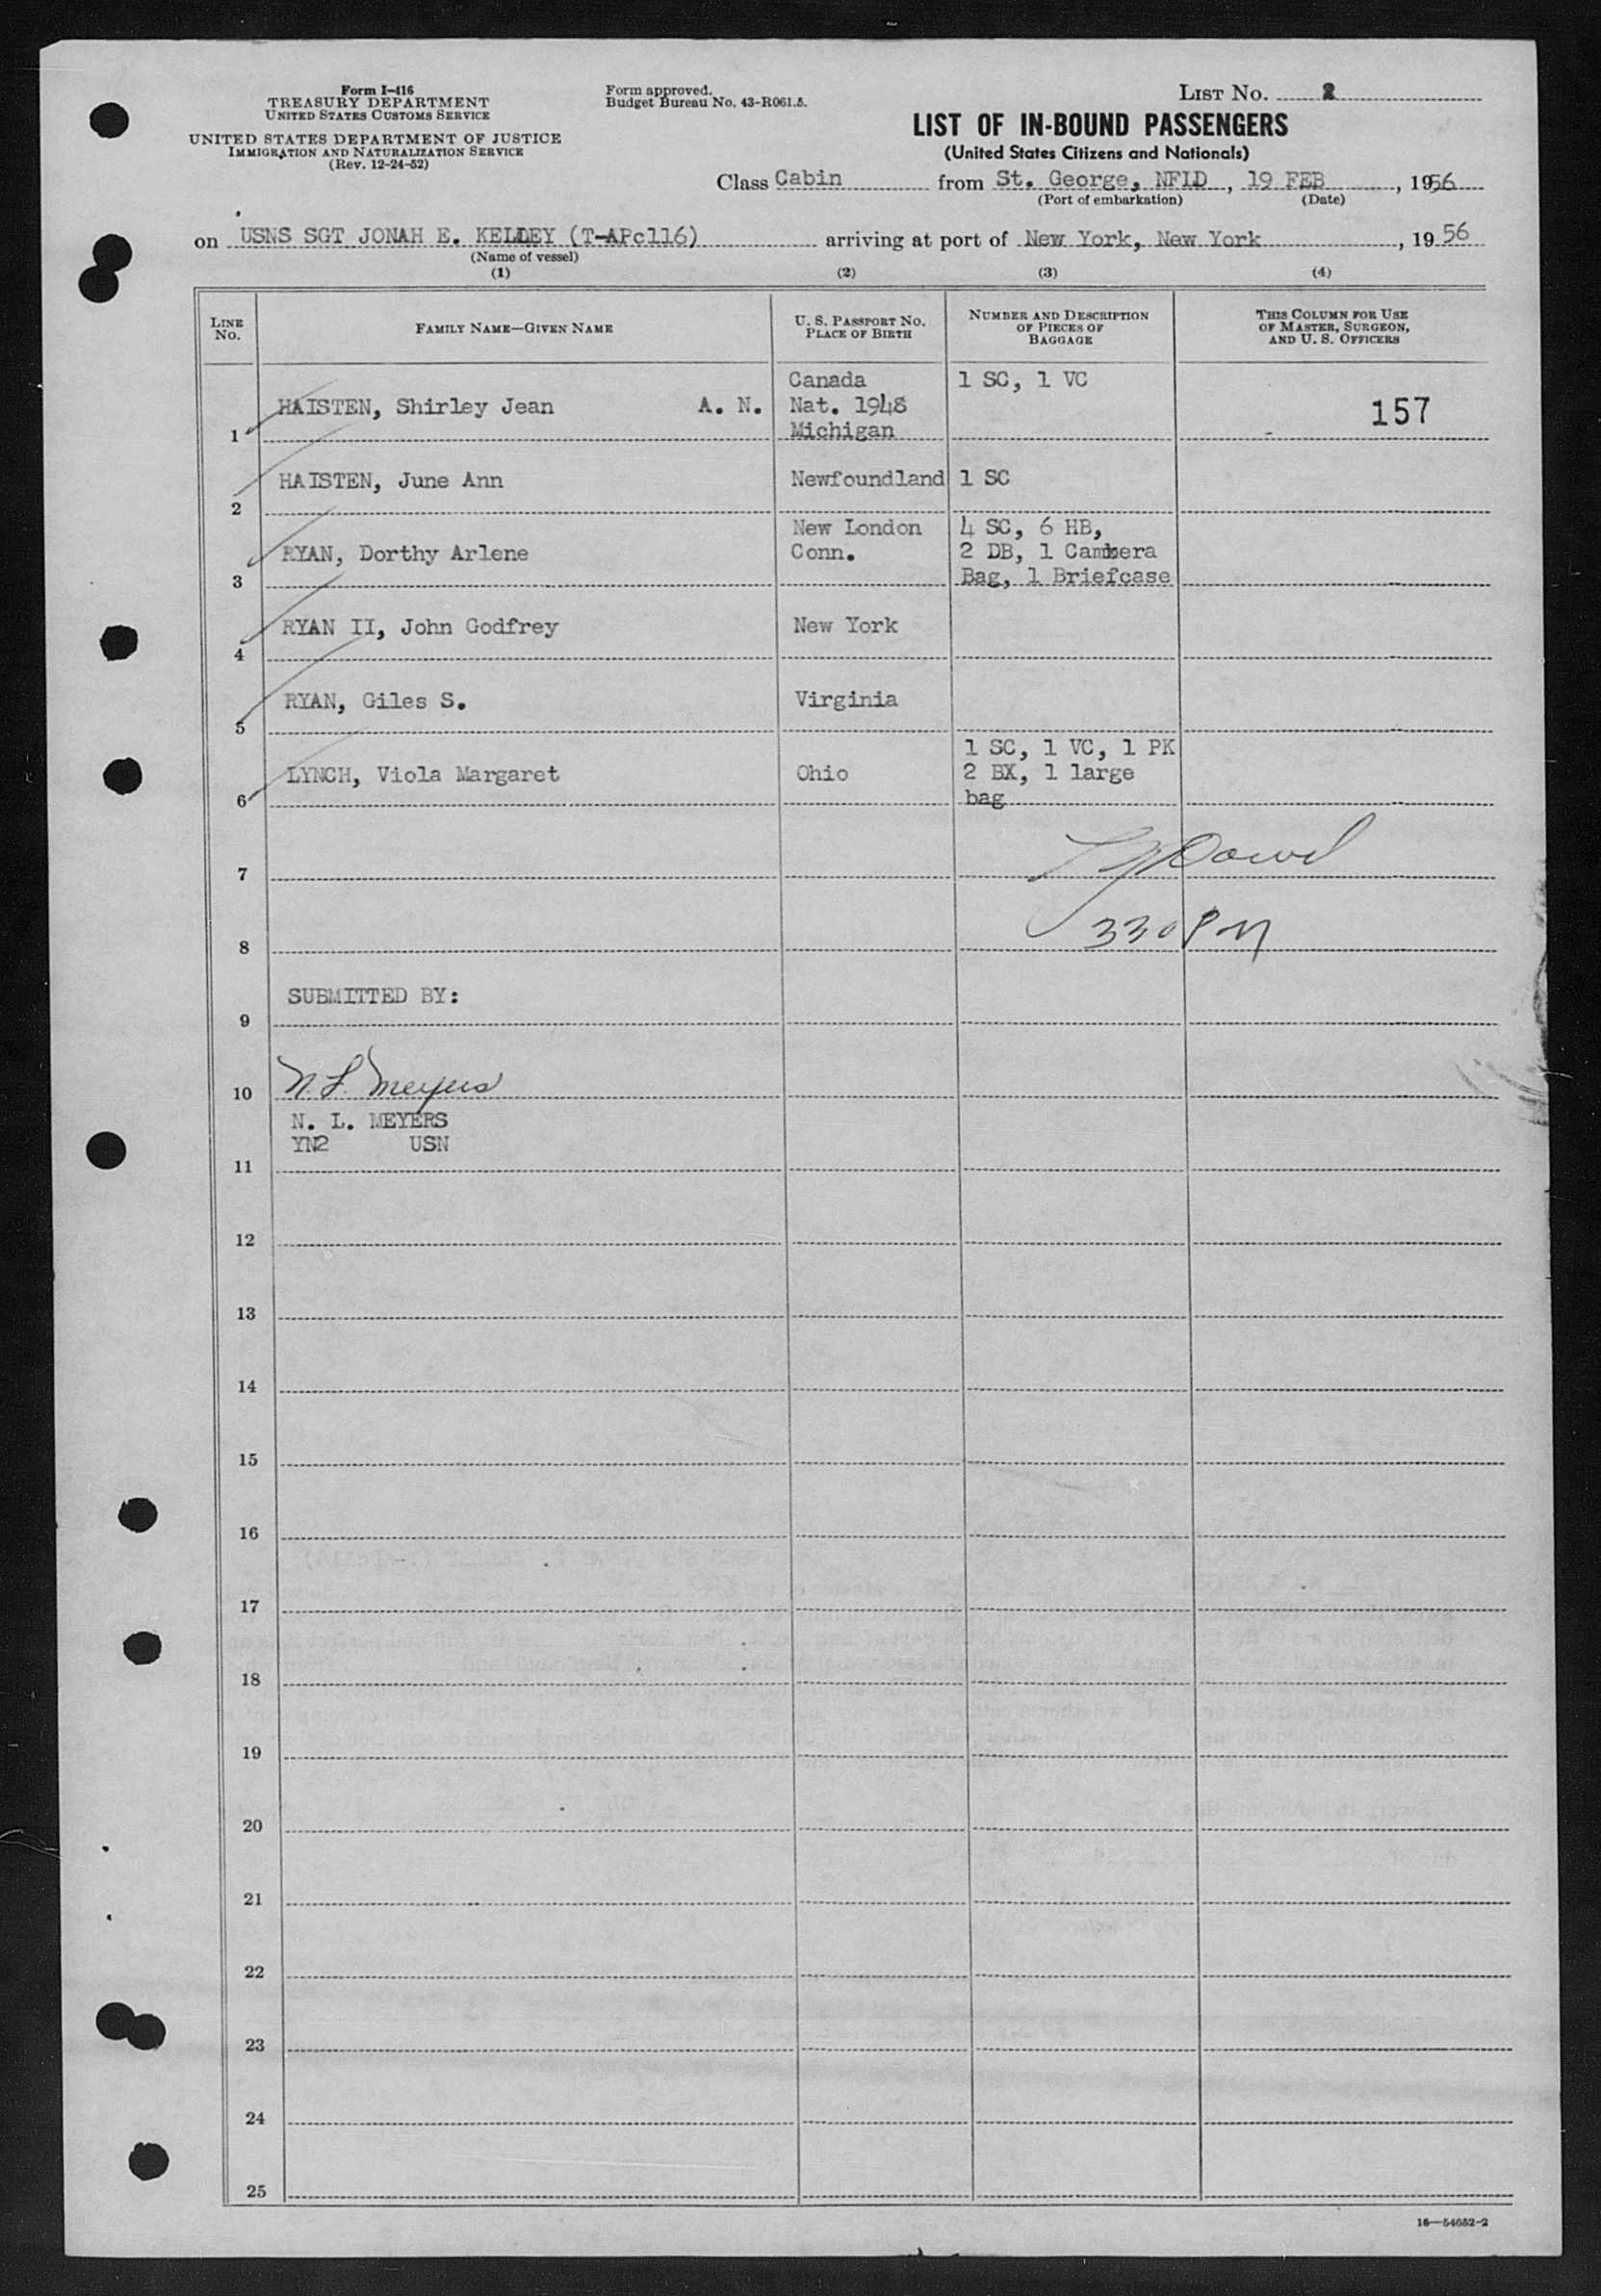 Form I-416
TREASURY DEPARTMENT
UNITED STATES CUSTOMS SERVICE
UNITED STATES DEPARTMENT OF JUSTICE
IMMIGRATION AND NATURALIZATION SERVICE
(Rev. 12-24-52)
Form approved.
Budget Bureau No. 43-R061.5.
LIST No. 2
LIST OF IN-BOUND PASSENGERS
(United States Citizens and Nationals)
Class Cabin from St. George, NFLD, 19 FEB, 1956
(Port of embarkation) (Date)
on USNS SGT JONAH E. KELLEY (T-APc116) arriving at port of New York, New York, 19 56
(Name of vessel)
(1) (2) (3) (4)
LINE No. FAMILY NAME—GIVEN NAME U. S. PASSPORT NO. PLACE OF BIRTH NUMBER AND DESCRIPTION OF PIECES OF BAGGAGE THIS COLUMN FOR USE OF MASTER, SURGEON, AND U. S. OFFICERS
Canada 1 SC, 1 VC
HAISTEN, Shirley Jean A. N. Nat. 1948 157
1 Michigan
HAISTEN, June Ann Newfoundland 1 SC
2
New London 4 SC, 6 HB,
RYAN, Dorthy Arlene Conn. 2 DB, 1 Cambera
3 Bag, 1 Briefcase
RYAN II, John Godfrey New York
4
RYAN, Giles S. Virginia
5
1 SC, 1 VC, 1 PK
LYNCH, Viola Margaret Ohio 2 BX, 1 large
6 bag
7
8 330 PM
SUBMITTED BY:
9
10 N. L. Meyers
N. L. MEYERS
YN2 USN
11
12
13
14
15
16
17
18
19
20
21
22
23
24
25
16—54652-2